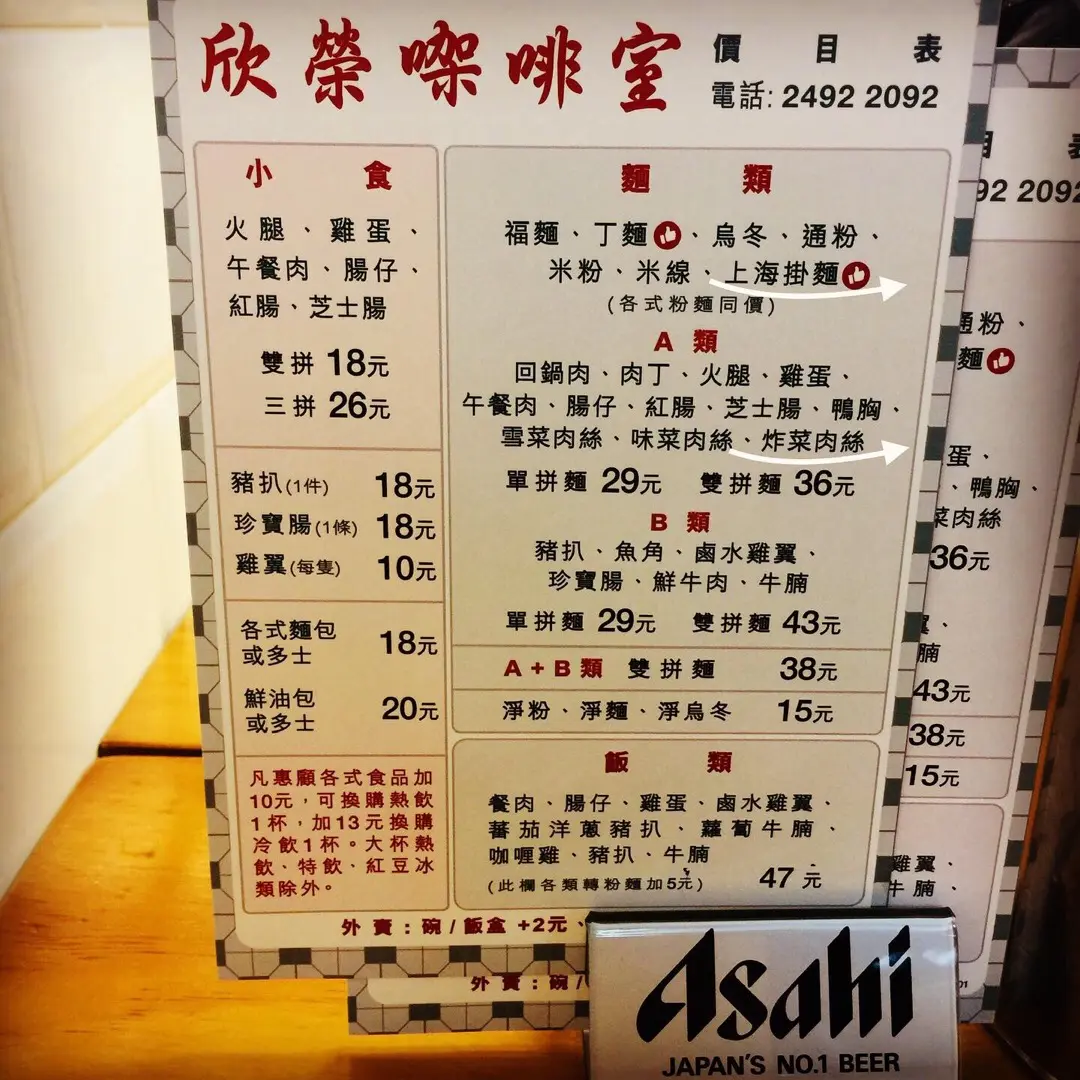 欣榮㗎啡室
價目表
電話: 2492 2092
小食
火腿、雞蛋、
午餐肉、腸仔、
紅腸、芝士腸
雙拼 18元
三拼 26元
豬扒(1件) 18元
珍寶腸(1條) 18元
雞翼(每隻) 10元
各式麵包
或多士 18元
鮮油包
或多士 20元
凡惠顧各式食品加
10元,可換購熱飲
1杯,加13元換購
冷飲1杯。大杯熱
飲、特飲、紅豆冰
類除外。
麵類
福麵、丁麵、烏冬、通粉、
米粉、米線、上海掛麵
(各式粉麵同價)
A類
回鍋肉、肉丁、火腿、雞蛋、
午餐肉、腸仔、紅腸、芝士腸、鴨胸、
雪菜肉絲、味菜肉絲、炸菜肉絲
單拼麵 29元 雙拼麵 36元
B類
豬扒、魚角、鹵水雞翼、
珍寶腸、鮮牛肉、牛腩
單拼麵 29元 雙拼麵 43元
A+B類 雙拼麵 38元
淨粉、淨麵、淨烏冬 15元
飯類
餐肉、腸仔、雞蛋、鹵水雞翼、
蕃茄洋蔥豬扒、蘿蔔牛腩、
咖喱雞、豬扒、牛腩
(此欄各類轉粉麵加5元) 47元
外賣:碗/飯盒 +2元、
目表
92 2092
通粉、
麵
蛋、
、鴨胸、
菜肉絲
36元
翼、
腩
43元
38元
15元
雞翼、
牛腩、
外賣:碗/
01
Asahi
JAPAN'S NO.1 BEER